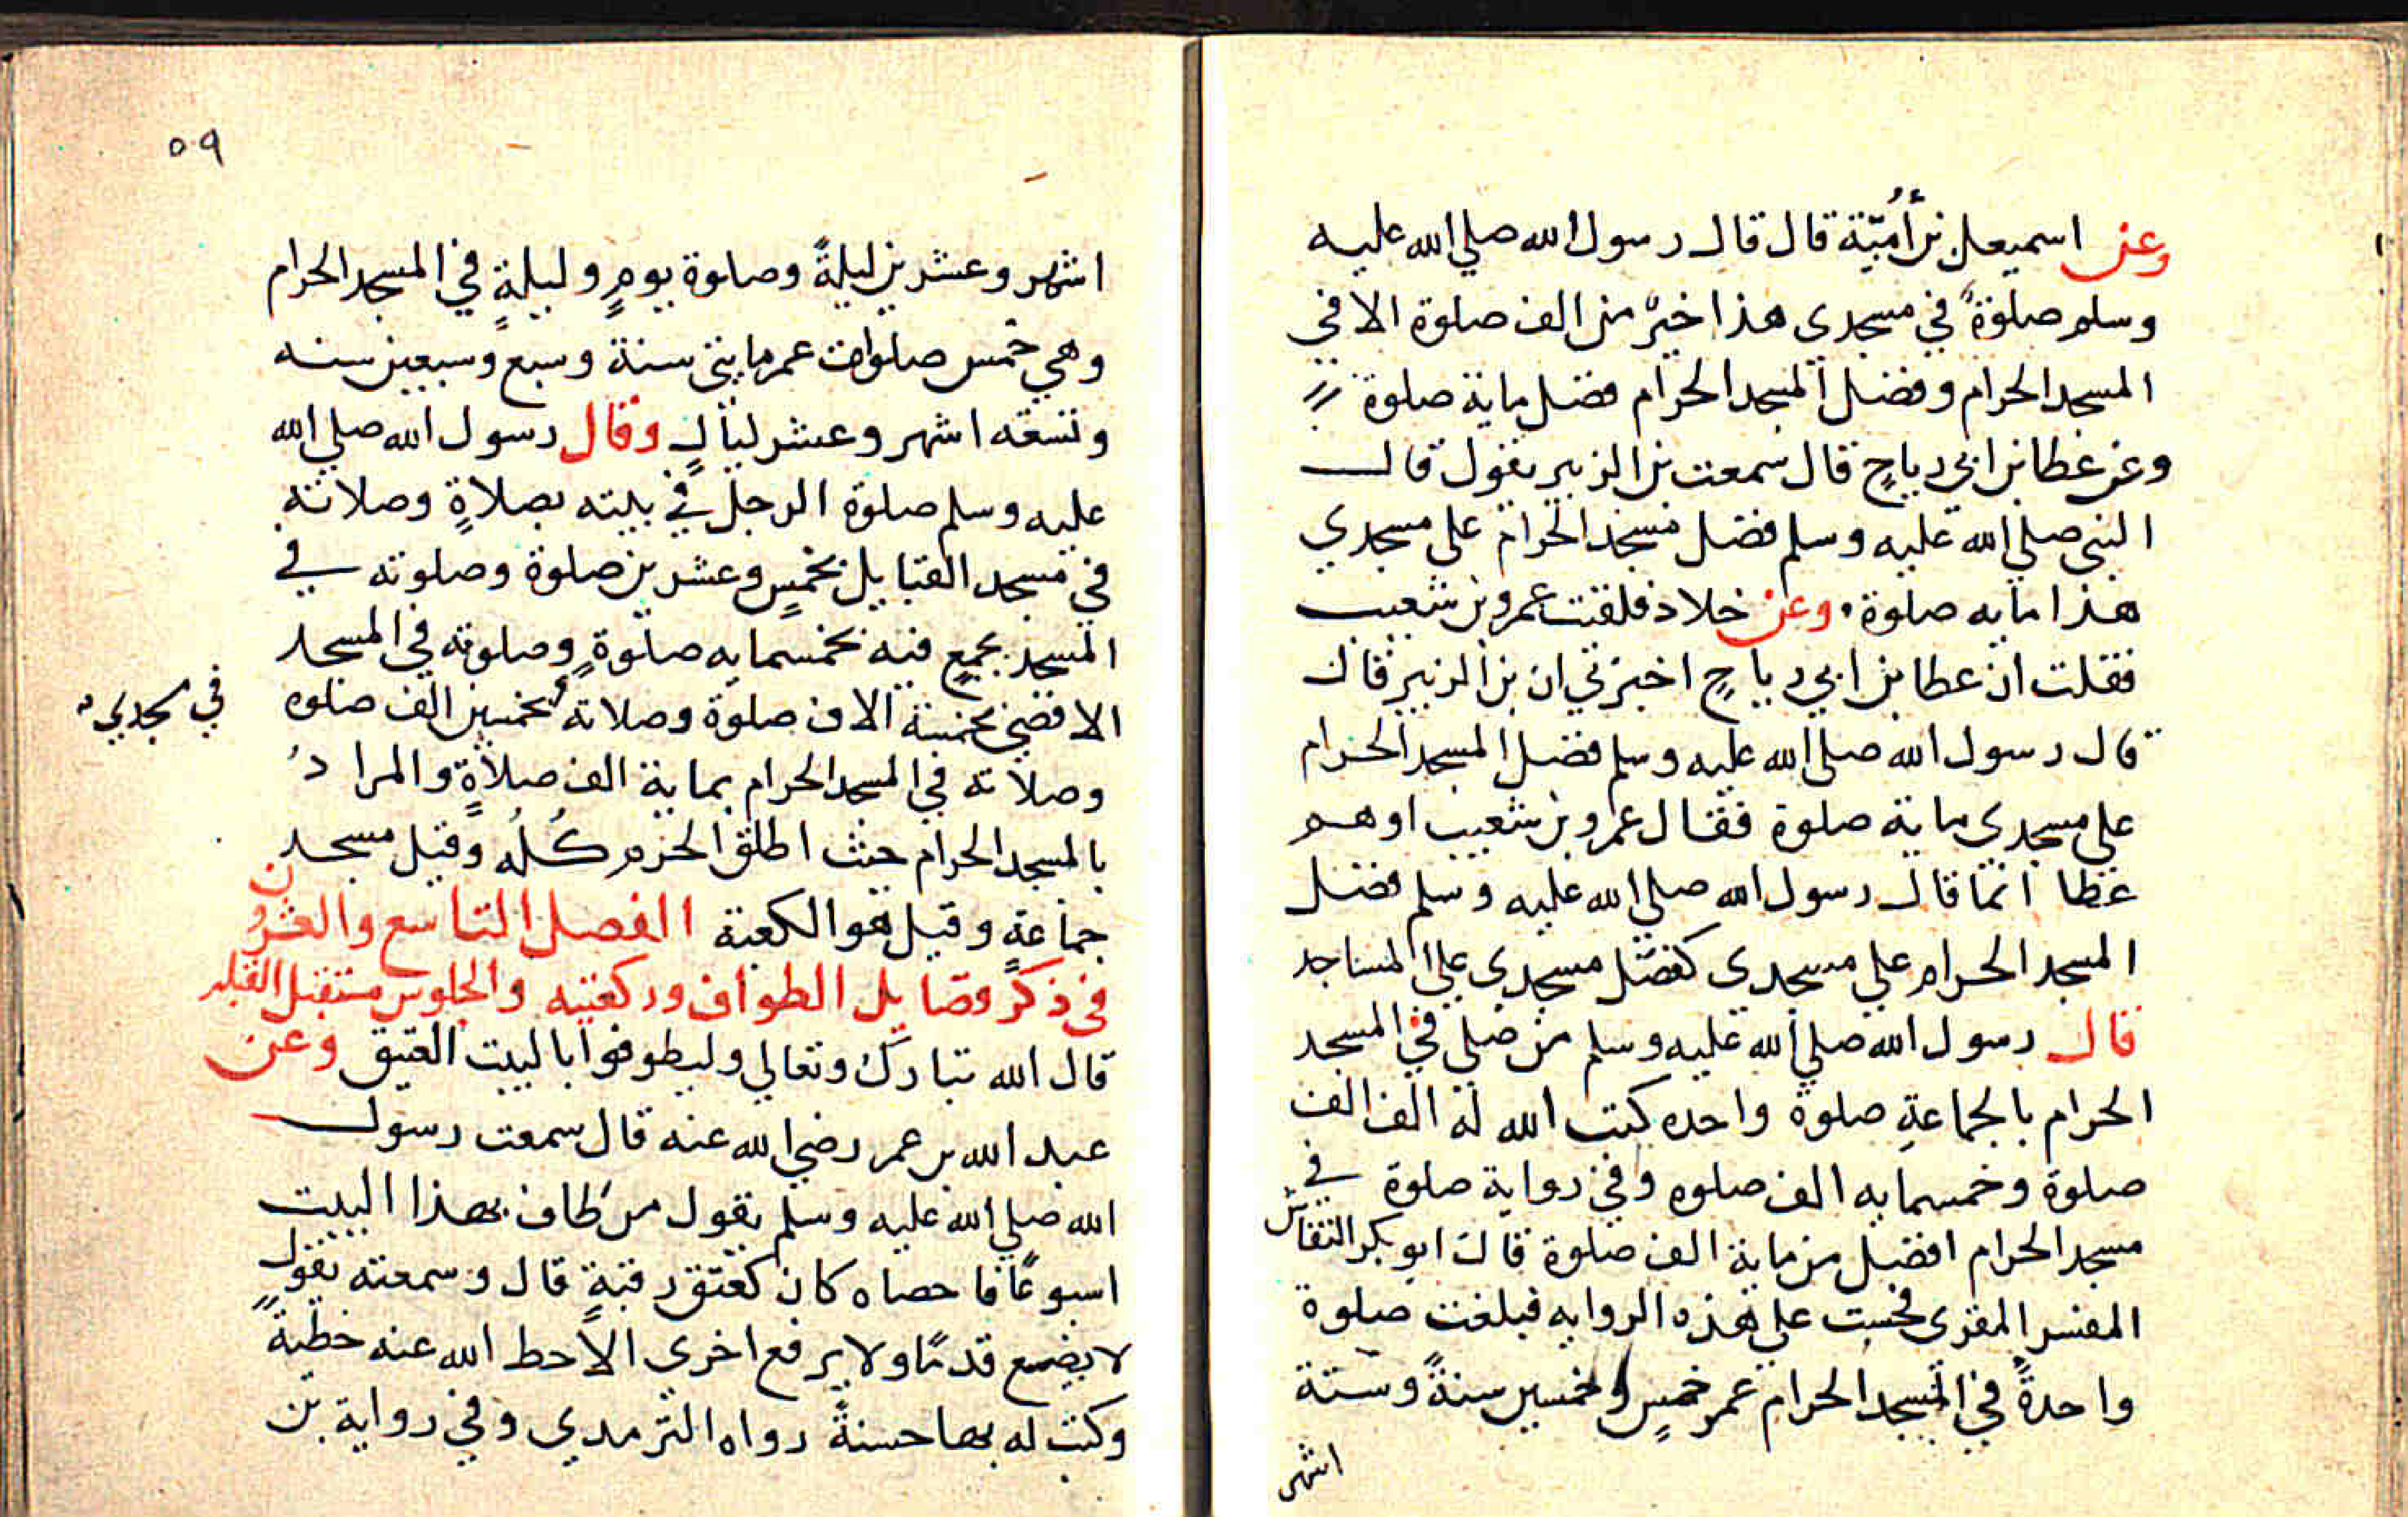 وعن اسمیعل بن أُمَیّة قال قال رسول الله صلي الله عليه
وسلم صلوةٌ في مسجدى هذا خيرٌ من الف صلوة الا في
المسجد الحرام وفضل المسجد الحرام فضل ماية صلوة
وعن عطا بن ابي رباحٍ قال سمعت بن الزبير يقول قال
النبي صلي الله عليه وسلم فضل مسجد الحرام على مسجدي
هذا مايه صلوة وعن خلاد فلقيت عمرو بن شعيب
فقلت ان عطا بن ابي رباحٍ اخبرني ان بن الزبير قال
قال رسول الله صلى الله عليه وسلم فضل المسجد الحرام
على مسجدى ماية صلوة فقال عمرو بن شعيب اوهم
عطا انما قال رسول الله صلي الله عليه وسلم فضل
المسجد الحرام علي مسجدى كفضل مسجدي على المساجد
قال رسول الله صلي الله عليه وسلم من صلي في المسجد
الحرام بالجماعةِ صلوة واحده كتب الله له الف الف
صلوة وخمسمايه الف صلوه وفي رواية صلوة في
مسجد الحرام افضل من ماية الف صلوة قال ابو بكر النقاش
المفسر المقرى فحسبت على هذه الروايه فبلغت صلوة
واحدةً في المسجد الحرام عمر خمسٍ وخمسين سنةً وستة
اشهر
٥٩
اشهر وعشرين ليلةً وصلوة يومٍ وليلةٍ في المسجد الحرام
وهي خمس صلوات عمر مايتى سنة وسبع وسبعين سنه
وتسعه اشهر وعشر ليالٍ وقال رسول الله صلي الله
عليه وسلم صلوة الرجل في بيته بصلاةٍ وصلاته
في مسجد القبايل بخمسٍ وعشرين صلوة وصلوته في
المسجد يجمع فيه بخمسمايه صلوةٍ وصلوته في المسجد
الاقصى بخمسة الاف صلوة وصلاته بخمسين الف صلوه
في مسجدي
وصلاته في المسجد الحرام بماية الف صلاةٍ والمراد
بالمسجد الحرام حيث اطلق الحرم كُلُه وقيل مسجد
جماعةٍ وقيل هو الكعبة الفصل التاسع والعشرون
فى ذكر فضايل الطواف وركعتيه والجلوس مستقبل القبله
قال الله تبارك وتعالي وليطوفوا بالبيت العتيق وعن
عبد الله بن عمر رضي الله عنه قال سمعت رسول
الله صلي الله عليه وسلم يقول من طاف بهذا البيت
اسبوعًا فاحصاه كان كعتق رقبةٍ قال وسمعته يقول
لا يضع قدمًا ولا يرفع اخرى الا حط الله عنه خطيةً
وكتب له بها حسنةً رواه الترمدي وفي رواية بن